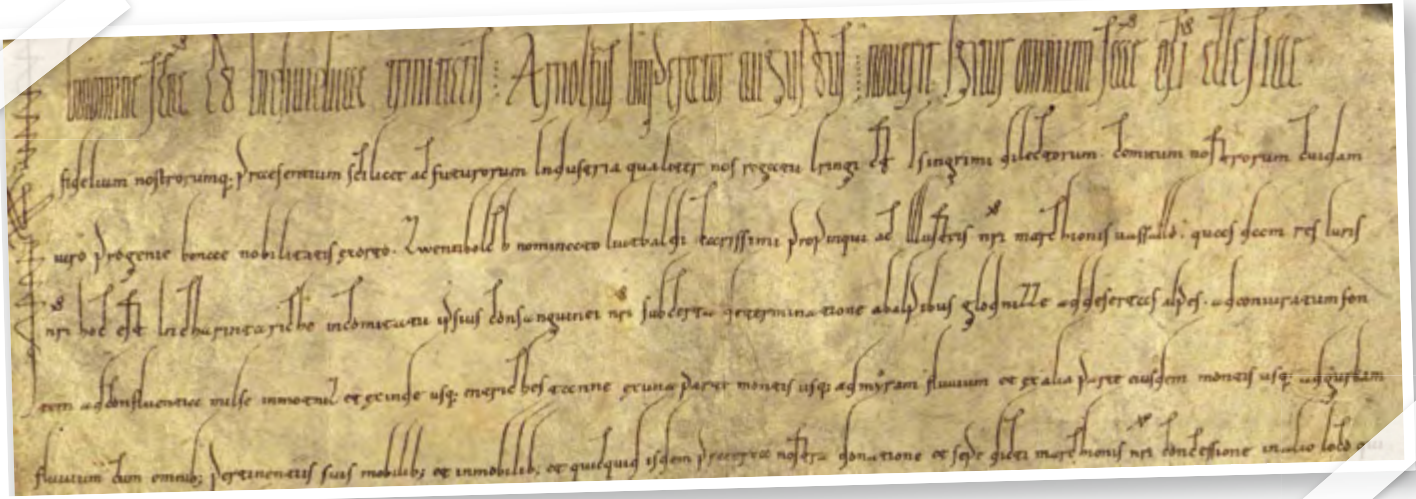 In nomine scae et indiuiduae trinitatis : Arnolfus imperator augustus : nouerit igitur omnium scae di ecclesiae
fidelium nostrorumq; praesentium scilicet ac futurorum Industria qualiter nos rogatu Iringi et Isingrimi dilectorum comitum nostrorum cuidam
uiro progenie bonae nobilitatis exorto. Zwentibolch nominato liutbaldi carissimi propinqui ac Illustris nri marchionis uassallo. quasdam res Iuris
nri hoc est In charintariche in comitatu ipsius consanguinei nri sub certa determinatione ab alpibus glodnizze ad desertas alpes. ad coniuratum fon
tem ad confluentiae milse inmotniz et exinde usq; eneriches tecinne ex una parte montis usq; ad myram fluuium et ex alia parte eiusdem montis usq; ad gurcam
fluuium cum omnib; pertinentiis suis mobilib; et inmobilib; et quicquid isdem nostra donatione et sepe dicti marchionis nri concessione in alio loco